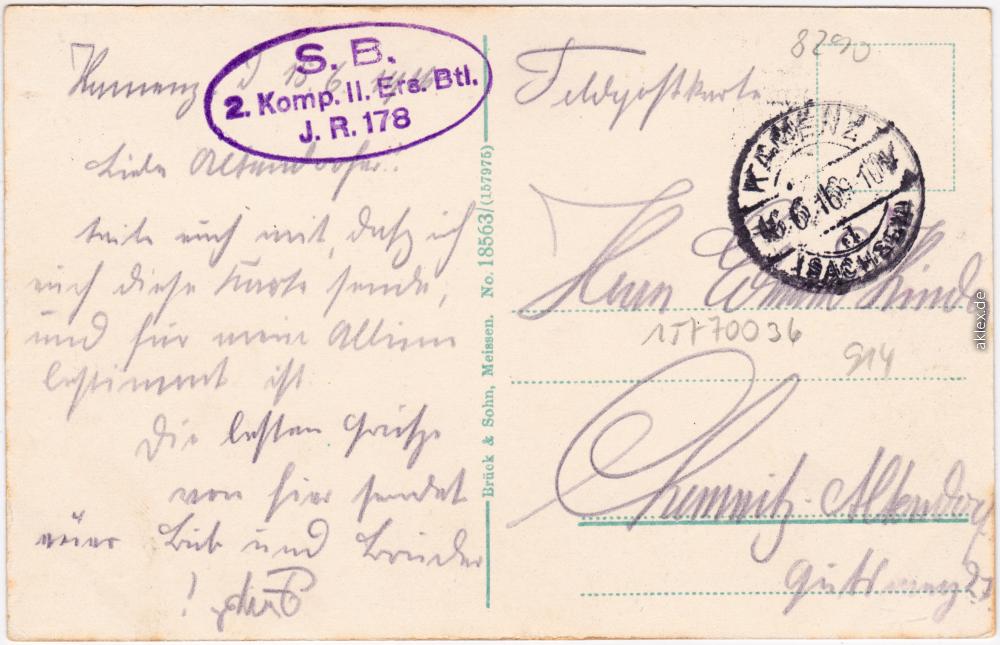 Kamenz d 15.6.1916
S. B.
2. Komp. II. Ers. Btl.
J. R. 178
Liebe
teile euch mit, daß ich
euch diese Karte sende,
und für mein Album
bestimmt ist
Die besten Grüße
von hier sendet
euer Bub und Bruder
!
Brück & Sohn, Meissen. No. 18563/(157975)
8290
Feldpostkarte
KAMENZ
6.16.9-10V
d
(SACHSEN)
Herrn
15770036
914
Chemnitz-Altendorf
27
aklex.de